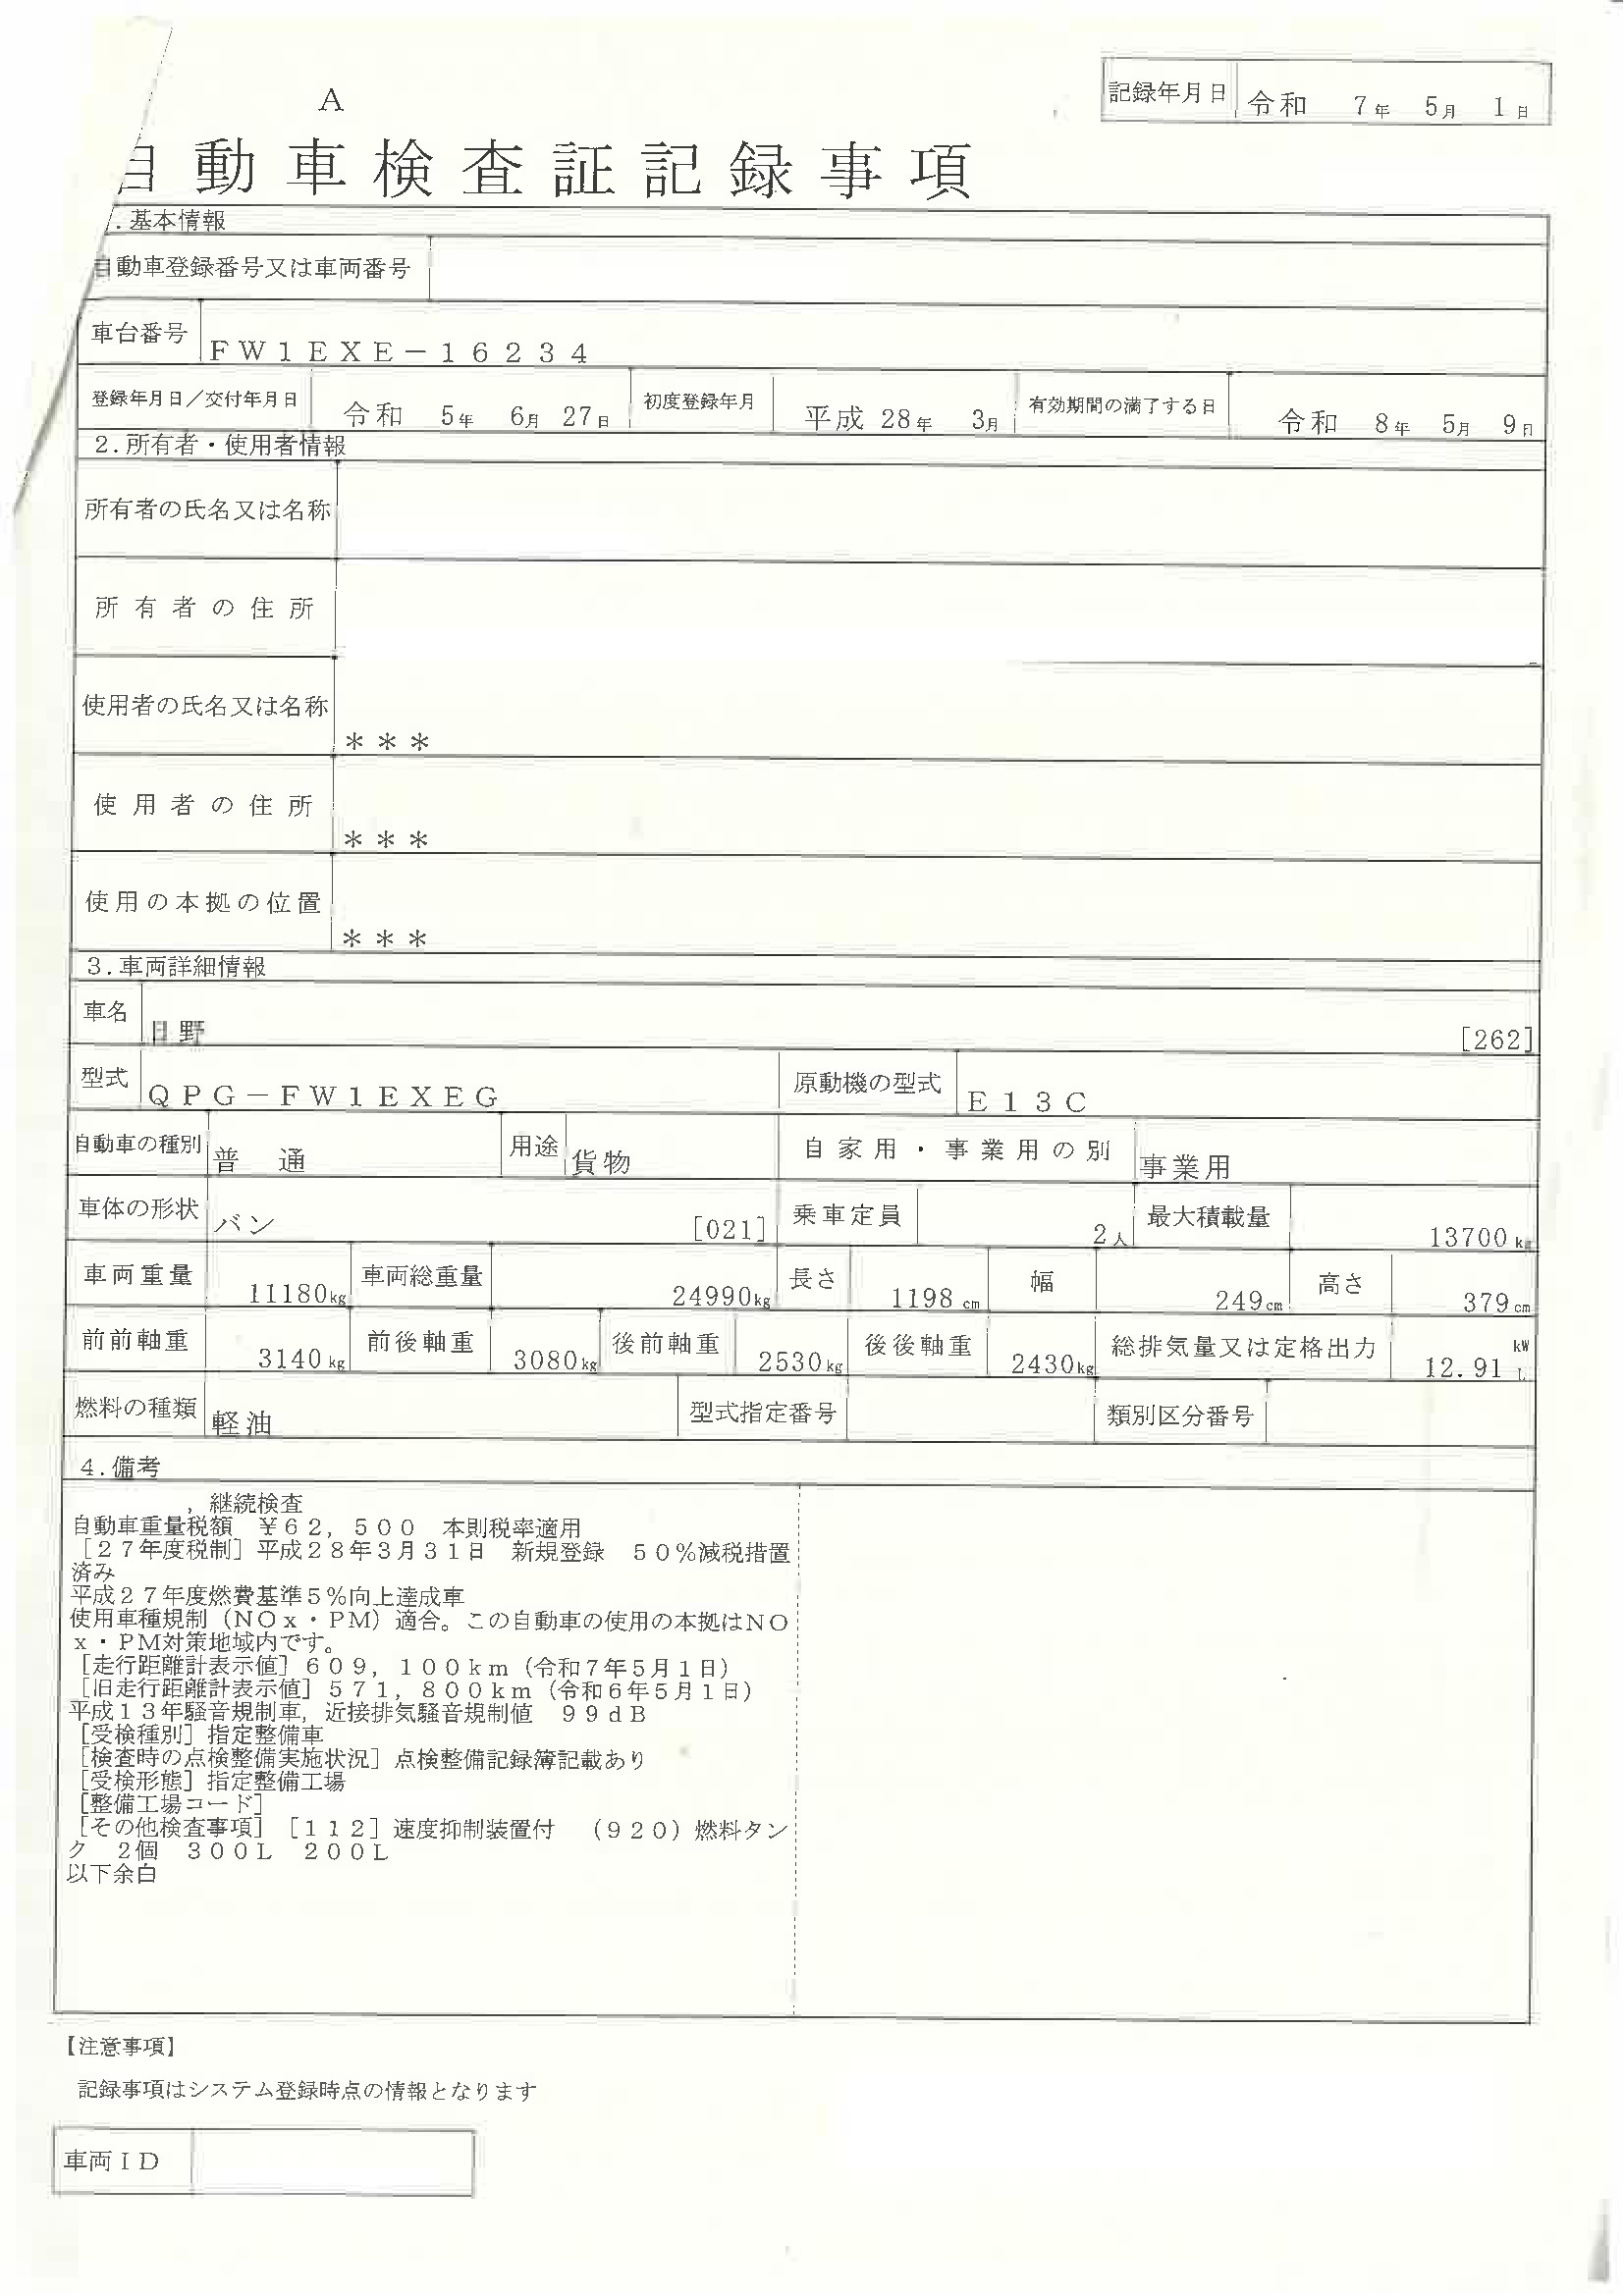 記録年月日 令和 7年 5月 1日
A
自動車検査証記録事項
.基本情報
自動車登録番号又は車両番号
車台番号 FW1EXE-16234
登録年月日/交付年月日 令和 5年 6月 27日 初度登録年月 平成 28年 3月 有効期間の満了する日 令和 8年 5月 9日
2.所有者・使用者情報
所有者の氏名又は名称
所有者の住所
使用者の氏名又は名称 ***
使用者の住所 ***
使用の本拠の位置 ***
3.車両詳細情報
車名 日野 [262]
型式 QPG-FW1EXEG 原動機の型式 E13C
自動車の種別 普通 用途 貨物 自家用・事業用の別 事業用
車体の形状 バン [021] 乗車定員 2人 最大積載量 13700kg
車両重量 11180kg 車両総重量 24990kg 長さ 1198cm 幅 249cm 高さ 379cm
前前軸重 3140kg 前後軸重 3080kg 後前軸重 2530kg 後後軸重 2430kg 総排気量又は定格出力 12.91 kW L
燃料の種類 軽油 型式指定番号 類別区分番号
4.備考
,継続検査
自動車重量税額 ¥62,500 本則税率適用
[27年度税制]平成28年3月31日 新規登録 50%減税措置
済み
平成27年度燃費基準5%向上達成車
使用車種規制(NOx・PM)適合。この自動車の使用の本拠はNO
x・PM対策地域内です。
[走行距離計表示値]609,100km(令和7年5月1日)
[旧走行距離計表示値]571,800km(令和6年5月1日)
平成13年騒音規制車,近接排気騒音規制値 99dB
[受検種別]指定整備車
[検査時の点検整備実施状況]点検整備記録簿記載あり
[受検形態]指定整備工場
[整備工場コード]
[その他検査事項][112]速度抑制装置付 (920)燃料タン
ク 2個 300L 200L
以下余白
【注意事項】
記録事項はシステム登録時点の情報となります
車両ID